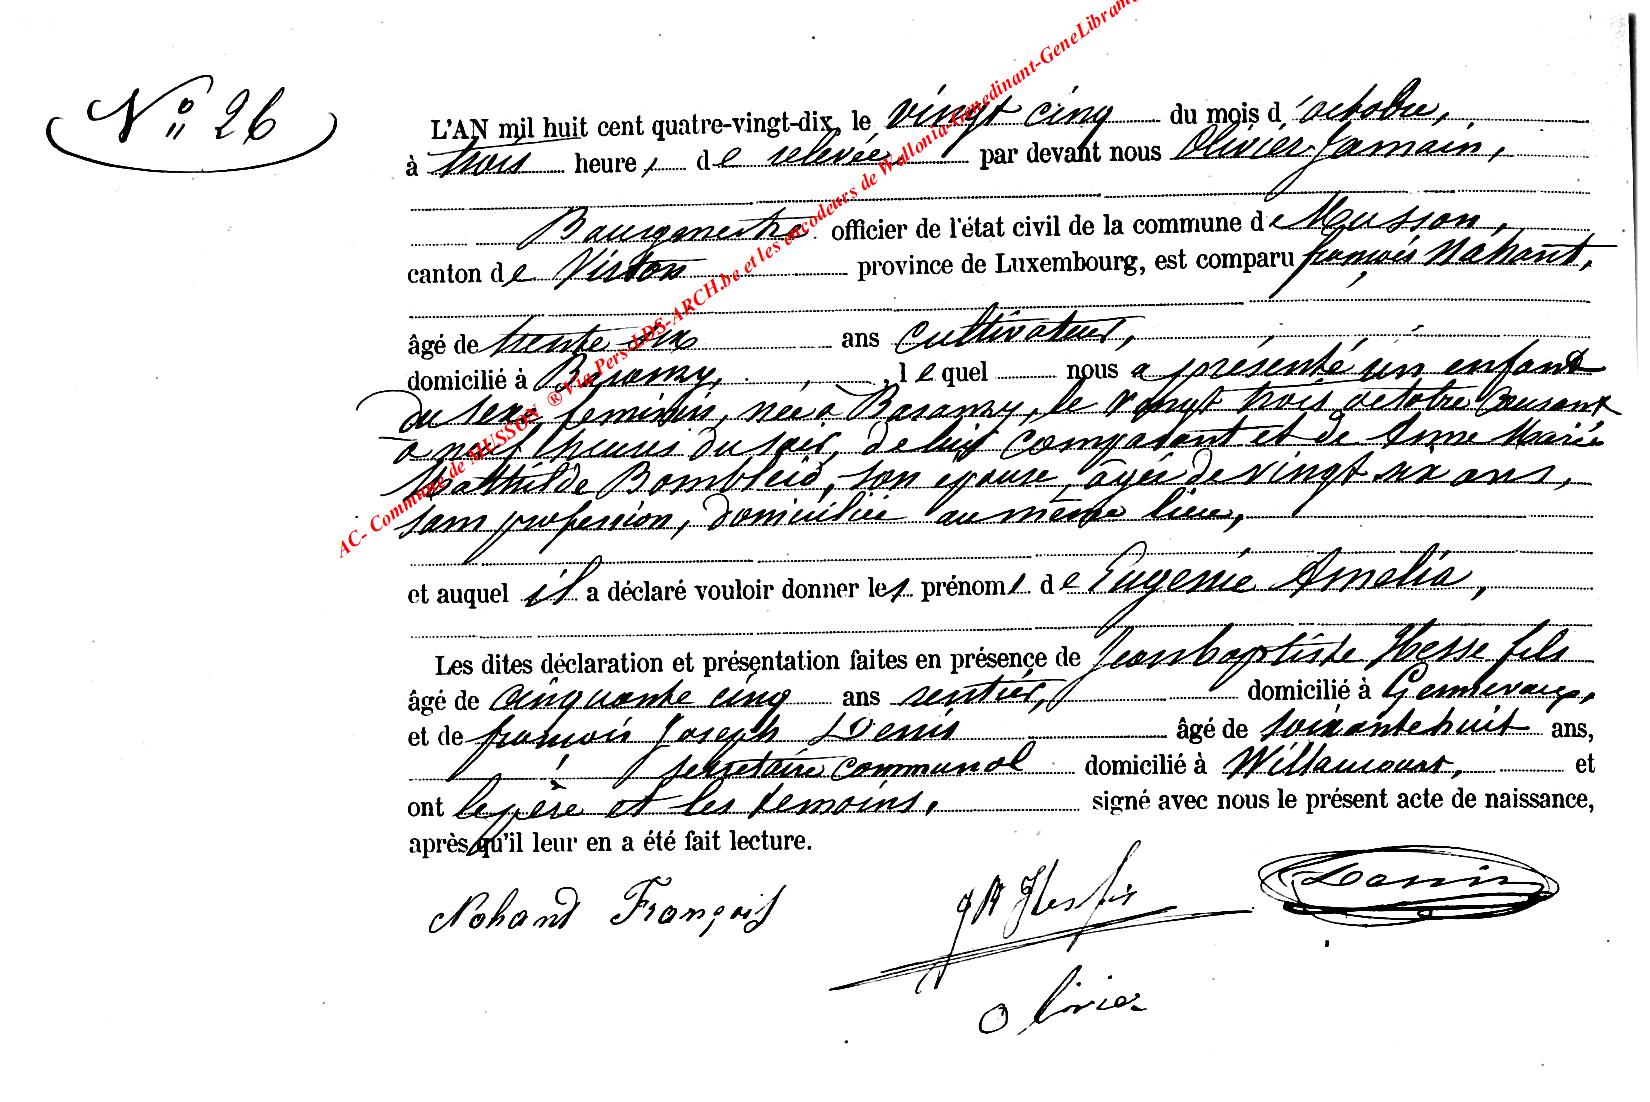 N° 26
L'AN mil huit cent quatre-vingt-dix, le vingt cinq du mois d'octobre,
à trois heures de relevée par devant nous Olivier Jamain,
Bourgmestre officier de l'état civil de la commune de Musson,
canton de Virton province de Luxembourg, est comparu françois Nahant,
âgé de trente six ans cultivateur,
domicilié à Baranzy, lequel nous a présenté un enfant
du sexe feminin, née à Baranzy, le vingt trois octobre courant
à neuf heures du soir, de lui comparant et de Anne Marie
Mathilde Bombled, son epouse, âgée de vingt six ans,
sans profession, domiciliée au même lieu,
et auquel il a déclaré vouloir donner les prénoms de Eugenie Amelia,
Les dites déclaration et présentation faites en présence de Jean baptiste Hesse fils
âgé de cinquante cinq ans rentier, domicilié à Gennevaux,
et de françois Joseph Denis âgé de soixante huit ans,
secretaire communal domicilié à Willancourt, et
ont le père et les temoins, signé avec nous le présent acte de naissance,
après qu'il leur en a été fait lecture.
Nohand François JB Hesse fils Denis
Olivier
AC- Commune de MUSSON ® Via Pers-LDS-ARCH.be et les encodeurs de Wallonia-Genedinant-GeneLibramo